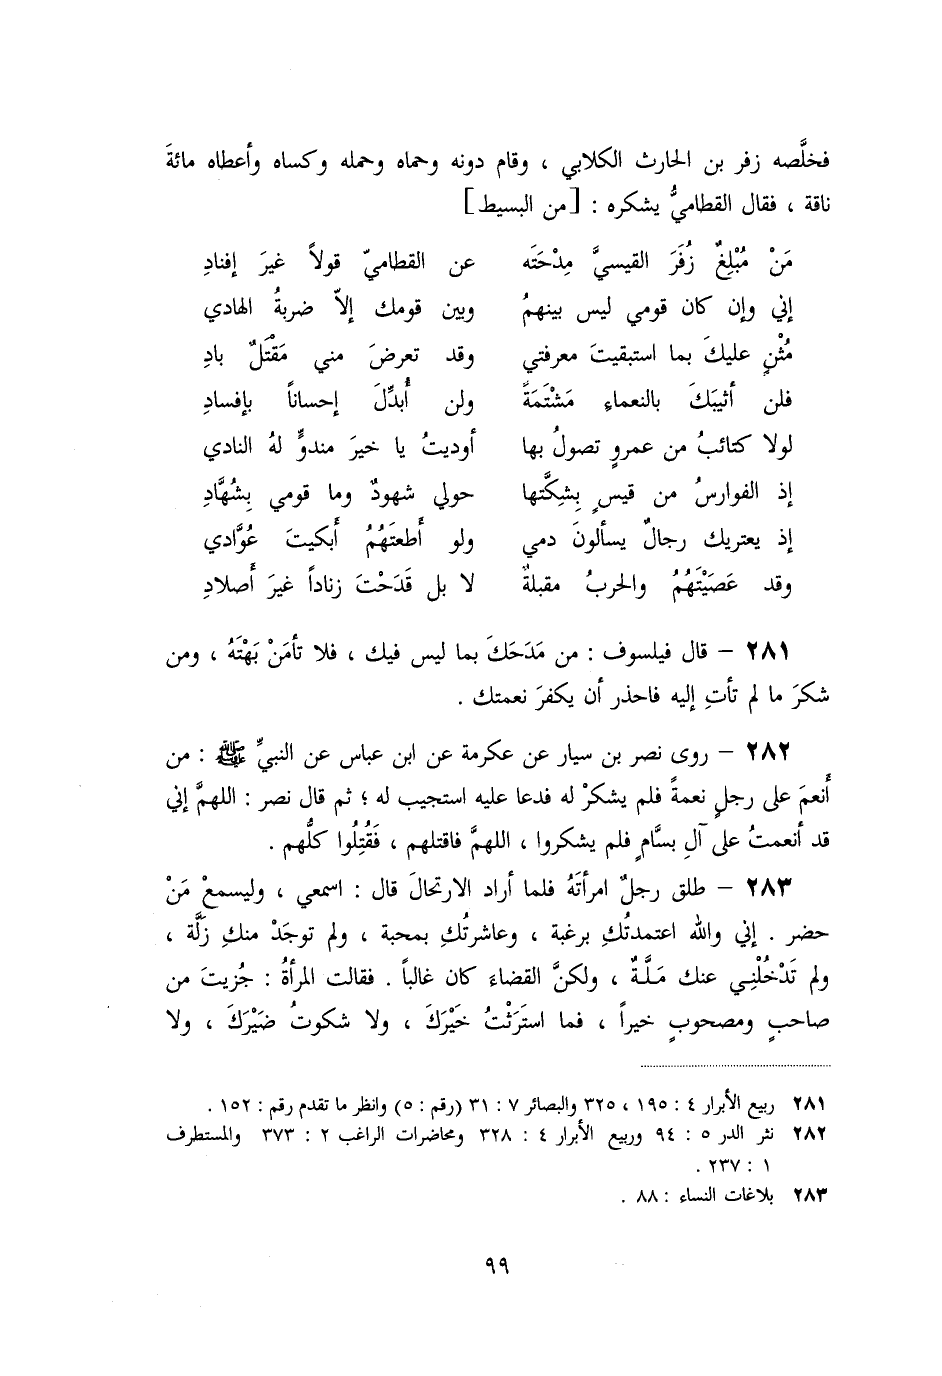 فخلَّصه زفر بن الحارث الكلابي ، وقام دونه وحماه وحمله وكساه وأعطاه مائةَ
ناقة ، فقال القطاميُّ يشكره : [من البسيط]
مَنْ مُبْلِغٌ زُفَرَ القيسيَّ مِدْحَتَه عن القطاميّ قولاً غيرَ إفنادِ
إني وإن كان قومي ليس بينهمُ وبين قومك إلاّ ضربةُ الهادي
مُثْنٍ عليكَ بما استبقيتَ معرفتي وقد تعرضَ مني مَقْتَلٌ بادِ
فلن أثيبَكَ بالنعماءِ مَشْتَمَةً ولن أُبدِّلَ إحساناً بإفسادِ
لولا كتائبُ من عمروٍ تصولُ بها أوديتُ يا خيرَ مندوٍّ لهُ النادي
إذ الفوارسُ من قيسٍ بِشِكَّتها حولي شهودٌ وما قومي بِشُهَّادِ
إذ يعتريك رجالٌ يسألونَ دمي ولو أَطعتَهُمُ أَبكيتَ عُوَّادي
وقد عَصَيْتَهُمُ والحربُ مقبلةٌ لا بل قَدَحْتَ زناداً غيرَ أَصلادِ
٢٨١ – قال فيلسوف : من مَدَحَكَ بما ليس فيك ، فلا تأمَنْ بَهْتَهُ ، ومن
شكرَ ما لم تأتِ إليه فاحذر أن يكفرَ نعمتك .
٢٨٢ – روى نصر بن سيار عن عكرمة عن ابن عباس عن النبيِّ ﷺ : من
أَنعمَ على رجلٍ نعمةً فلم يشكرْ له فدعا عليه استجيب له ؛ ثم قال نصر : اللهمَّ إني
قد أنعمتُ على آلِ بسَّامٍ فلم يشكروا ، اللهمَّ فاقتلهم ، فَقُتِلُوا كلُّهم .
٢٨٣ – طلق رجلٌ امرأتَهُ فلما أراد الارتحالَ قال : اسمعي ، وليسمعْ مَنْ
حضر . إني والله اعتمدتُكِ برغبة ، وعاشرتُكِ بمحبة ، ولم توجَدْ منكِ زَلَّة ،
ولم تَدْخُلْنِي عنك مَلَّةٌ ، ولكنَّ القضاءَ كان غالباً . فقالت المرأةُ : جُزيتَ من
صاحبٍ ومصحوبٍ خيراً ، فما استَرَثْتُ خَيْرَكَ ، ولا شكوتُ ضَيْرَكَ ، ولا
٢٨١ ربيع الأبرار ٤ : ١٩٥ ، ٣٢٥ والبصائر ٧ : ٣١ (رقم : ٥) وانظر ما تقدم رقم : ١٥٢ .
٢٨٢ نثر الدر ٥ : ٩٤ وربيع الأبرار ٤ : ٣٢٨ ومحاضرات الراغب ٢ : ٣٧٣ والمستطرف
١ : ٢٣٧ .
٢٨٣ بلاغات النساء : ٨٨ .
٩٩